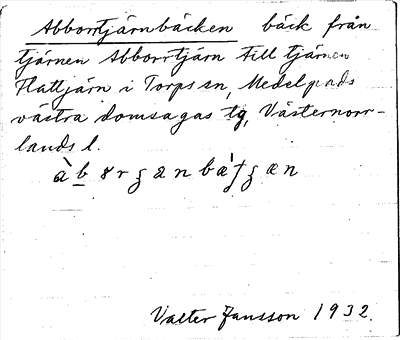 Abborrtjärnbäcken bäck från
tjärnen Abborrtjärn till tjärnen
Flattjärn i Torps sn, Medelpads
västra domsagas tg, Västernorr-
lands l.
Valter Jansson 1932.